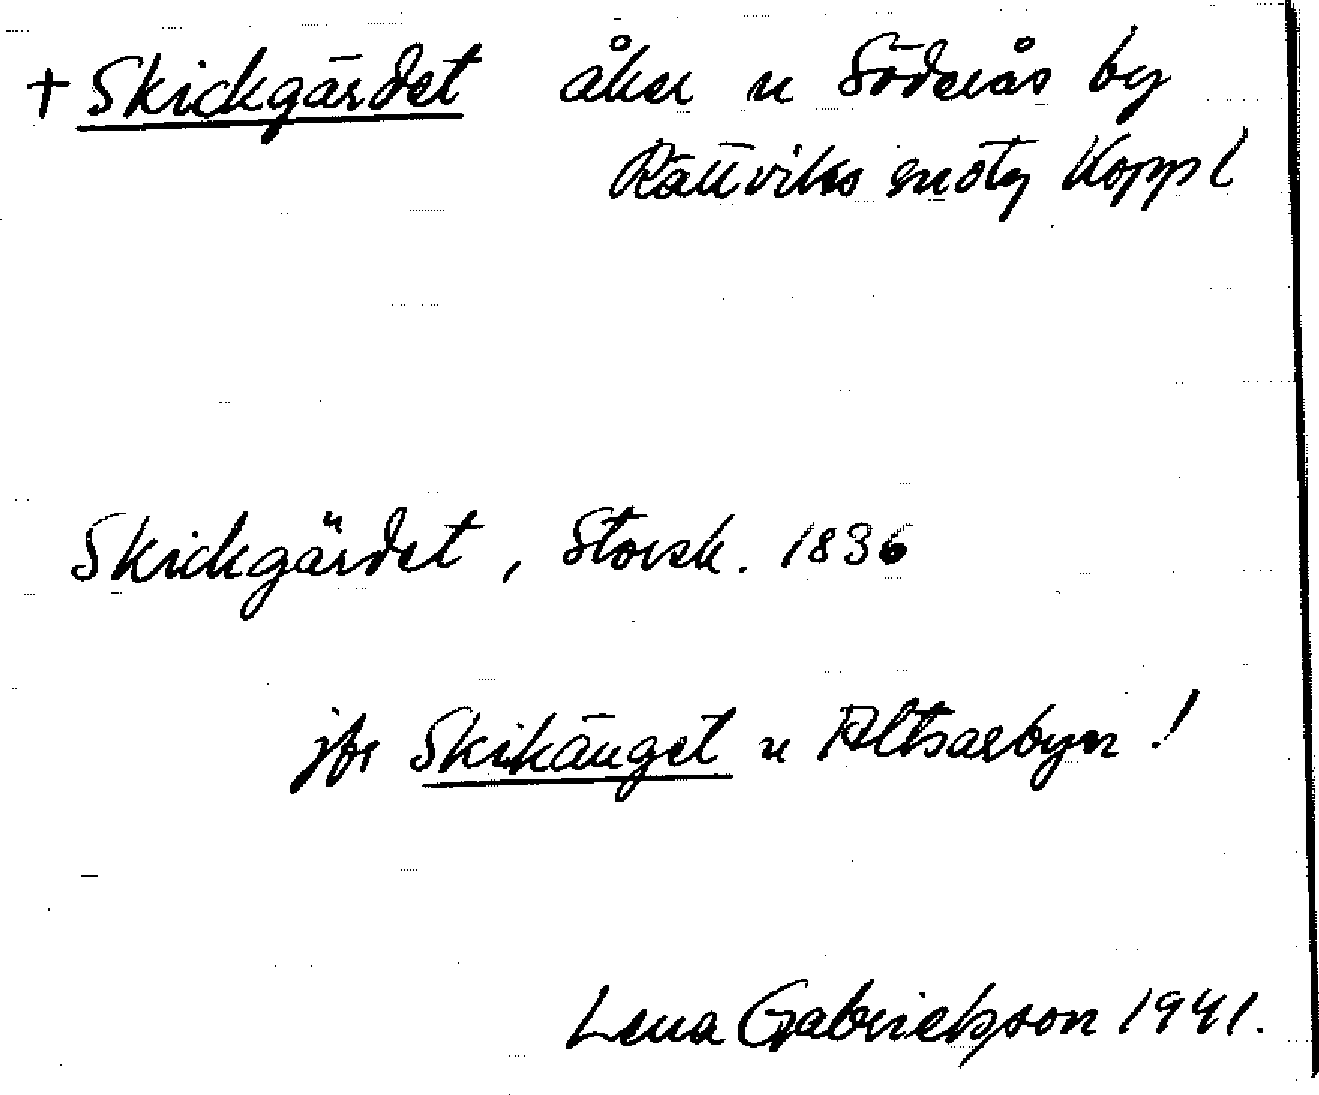 + Skickgärdet åker u Söderås by
Rättviks snötg Koppl
Skickgärdet, Storsk. 1836
jfr Skikänget u Altsarbyn!
Lena Gabrielsson 1941.